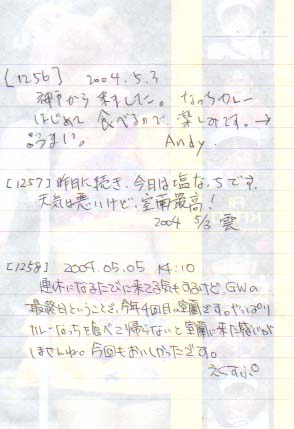 [1256] 2004.5.3
神戸から来ました。なっちカレー
はじめて食べるので楽しみです。→
うまい。 Andy.
[1257] 昨日に続き、今日は塩なっちです。
天気は悪いけど、室蘭最高!
2004 5/3 雲
[1258] 2004.05.05 14:10
連休になるたびに来てる気もするけど、GWの
最終日ということで、今年4回目の室蘭です。やっぱり
カレーなっちを食べて帰らないと室蘭に来た感じが
しませんね。今回もおいしかったです。